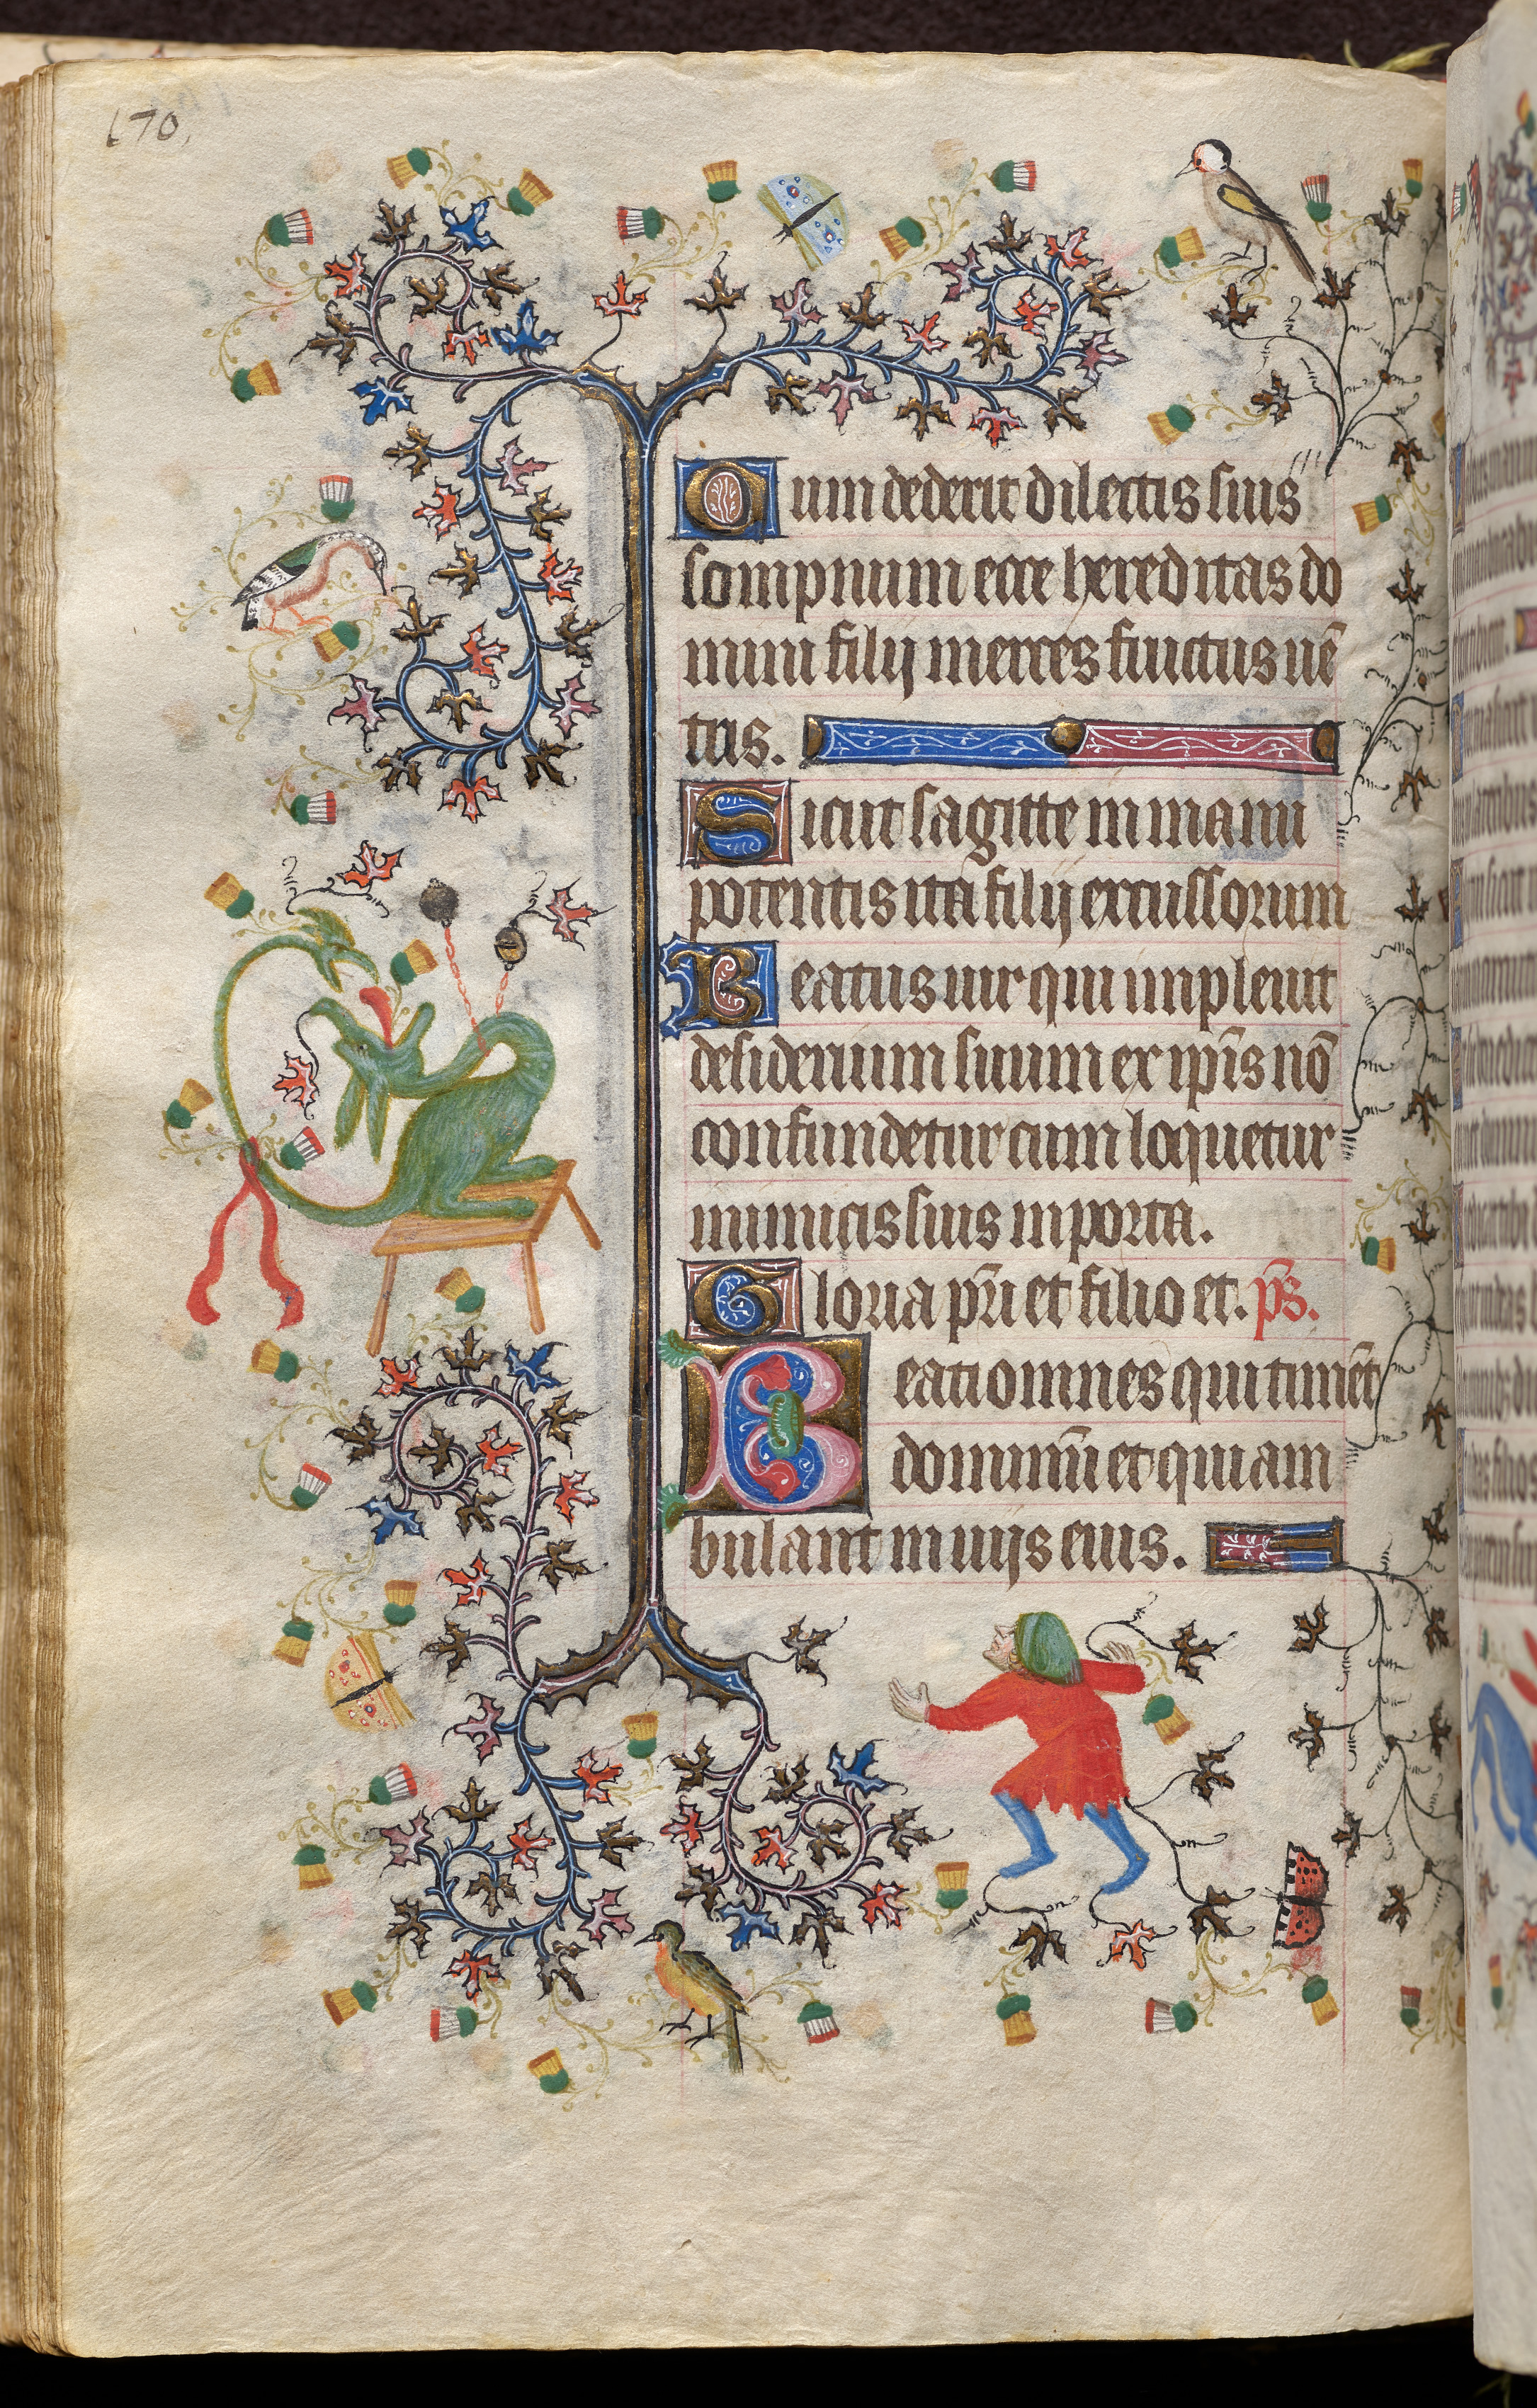 170,
Cum dederit dilectis suis
sompnum ecce hereditas do
mini filij merces fructus uē
tris.
Sicut sagitte in manu
potentis ita filij excussorum
Beatus uir qui impleuit
desiderium suum ex ip̄is nō
confundetur cum loquetur
inimicis suis in porta.
Gloria pr̄i et filio et. p̄s.
Beati omnes qui timēt
dominū et qui am
bulant in uijs eius.